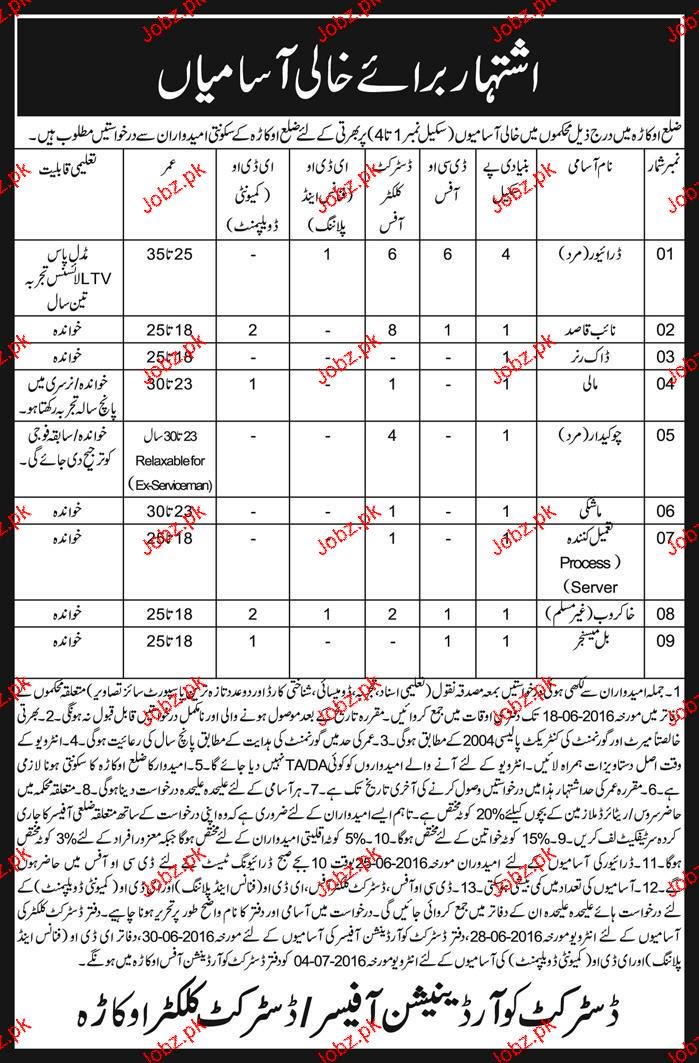 اشتہار برائے خالی آسامیاں
ضلع اوکاڑہ میں درج ذیل محکموں میں خالی آسامیوں (سکیل نمبر 1 تا 4) پر بھرتی کے لئے ضلع اوکاڑہ کے سکونتی امیدواران سے درخواستیں مطلوب ہیں۔
نمبر شمار | نام آسامی | بنیادی پے سکیل | ڈی سی او آفس | ڈسٹرکٹ کلکٹر آفس | ای ڈی او (فنانس اینڈ پلاننگ) | ای ڈی او (کمیونٹی ڈویلپمنٹ) | عمر | تعلیمی قابلیت
01 | ڈرائیور (مرد) | 4 | 6 | 6 | 1 | - | 25 تا 35 | مڈل پاس LTV لائسنس تجربہ تین سال
02 | نائب قاصد | 1 | 1 | 8 | - | 2 | 18 تا 25 | خواندہ
03 | ڈاک رنر | 1 | - | - | - | - | 18 تا 25 | خواندہ
04 | مالی | 1 | - | 1 | - | 1 | 23 تا 30 | خواندہ/نرسری میں پانچ سالہ تجربہ رکھتا ہو۔
05 | چوکیدار (مرد) | 1 | - | 4 | - | - | 23 تا 30 سال Relaxable for (Ex-Serviceman) | خواندہ/سابقہ فوجی کو ترجیح دی جائے گی۔
06 | ماشکی | 1 | - | 1 | - | - | 23 تا 30 | خواندہ
07 | تعمیل کنندہ (Process Server) | 1 | - | 1 | - | - | 18 تا 25 | خواندہ
08 | خاکروب (غیر مسلم) | 1 | 1 | 2 | 1 | 2 | 18 تا 25 | خواندہ
09 | بل میسنجر | 1 | 1 | - | - | 1 | 18 تا 25 | خواندہ
1۔ جملہ امیدواران سے لکھی ہوئی درخواستیں بمعہ مصدقہ نقول (تعلیمی اسناد، تجربہ، ڈومیسائل، شناختی کارڈ اور دو عدد تازہ ترین پاسپورٹ سائز تصاویر) متعلقہ محکموں کے
دفاتر میں مورخہ 18-06-2016 تک دفتری اوقات میں جمع کروائیں۔ مقررہ تاریخ کے بعد موصول ہونے والی اور نامکمل درخواستیں قابل قبول نہ ہونگی۔ 2۔ بھرتی
خالصتاً میرٹ اور گورنمنٹ کی کنٹریکٹ پالیسی 2004 کے مطابق ہوگی۔ 3۔ عمر کی حد میں گورنمنٹ کی ہدایت کے مطابق پانچ سال کی رعائیت ہوگی۔ 4۔ انٹرویو کے
وقت اصل دستاویزات ہمراہ لائیں۔ انٹرویو کے لئے آنے والے امیدواران کو کوئی TA/DA نہیں دیا جائے گا۔ 5۔ امیدوار کا ضلع اوکاڑہ کا سکونتی ہونا لازمی
ہے۔ 6۔ مقررہ عمر کی حد اشتہار ہذا میں درخواستیں وصول کرنے کی آخری تاریخ تک ہے۔ 7۔ ہر آسامی کے لئے علیحدہ علیحدہ درخواست دینا ہوگی۔ 8۔ متعلقہ محکمہ میں
حاضر سروس/ریٹائرڈ ملازمین کے بچوں کیلئے 20% کوٹہ مختص ہے۔ تاہم ایسے امیدواران کے لئے ضروری ہے کہ وہ اپنی درخواست کے ساتھ متعلقہ ضلعی آفیسر کا جاری
کردہ سرٹیفکیٹ لف کریں۔ 9۔ 15% کوٹہ خواتین کے لئے مختص ہوگا۔ 10۔ 5% کوٹہ اقلیتی امیدواران کے لئے مختص ہوگا جبکہ معذور افراد کے لئے 3% کوٹہ مختص
ہوگا۔ 11۔ ڈرائیور کی آسامیوں کے لئے امیدواران مورخہ 25-06-2016 بوقت 10 بجے صبح ڈرائیونگ ٹیسٹ کے لئے ڈی سی او آفس میں حاضر ہوں
گے۔ 12۔ آسامیوں کی تعداد میں کمی بیشی ہو سکتی ہے۔ 13۔ ڈی سی او آفس، ڈسٹرکٹ کلکٹر آفس، ای ڈی او (فنانس اینڈ پلاننگ) اور ای ڈی او (کمیونٹی ڈویلپمنٹ) کے
لئے درخواست ہائے علیحدہ علیحدہ ان کے دفاتر میں جمع کروائی جائیں گی۔ درخواست میں آسامی اور دفتر کا نام واضح طور پر تحریر ہونا چاہیے۔ دفتر ڈسٹرکٹ کلکٹر کی
آسامیوں کے لئے انٹرویو مورخہ 28-06-2016، دفتر ڈسٹرکٹ کوآرڈینیشن آفیسر کی آسامیوں کے لئے مورخہ 30-06-2016، دفاتر ای ڈی او (فنانس اینڈ
پلاننگ) اور ای ڈی او (کمیونٹی ڈویلپمنٹ) کی آسامیوں کے لئے انٹرویو مورخہ 04-07-2016 کو دفتر ڈسٹرکٹ کوآرڈینیشن آفس اوکاڑہ میں ہونگے۔
ڈسٹرکٹ کوآرڈینیشن آفیسر/ڈسٹرکٹ کلکٹر اوکاڑہ
Jobz.pk